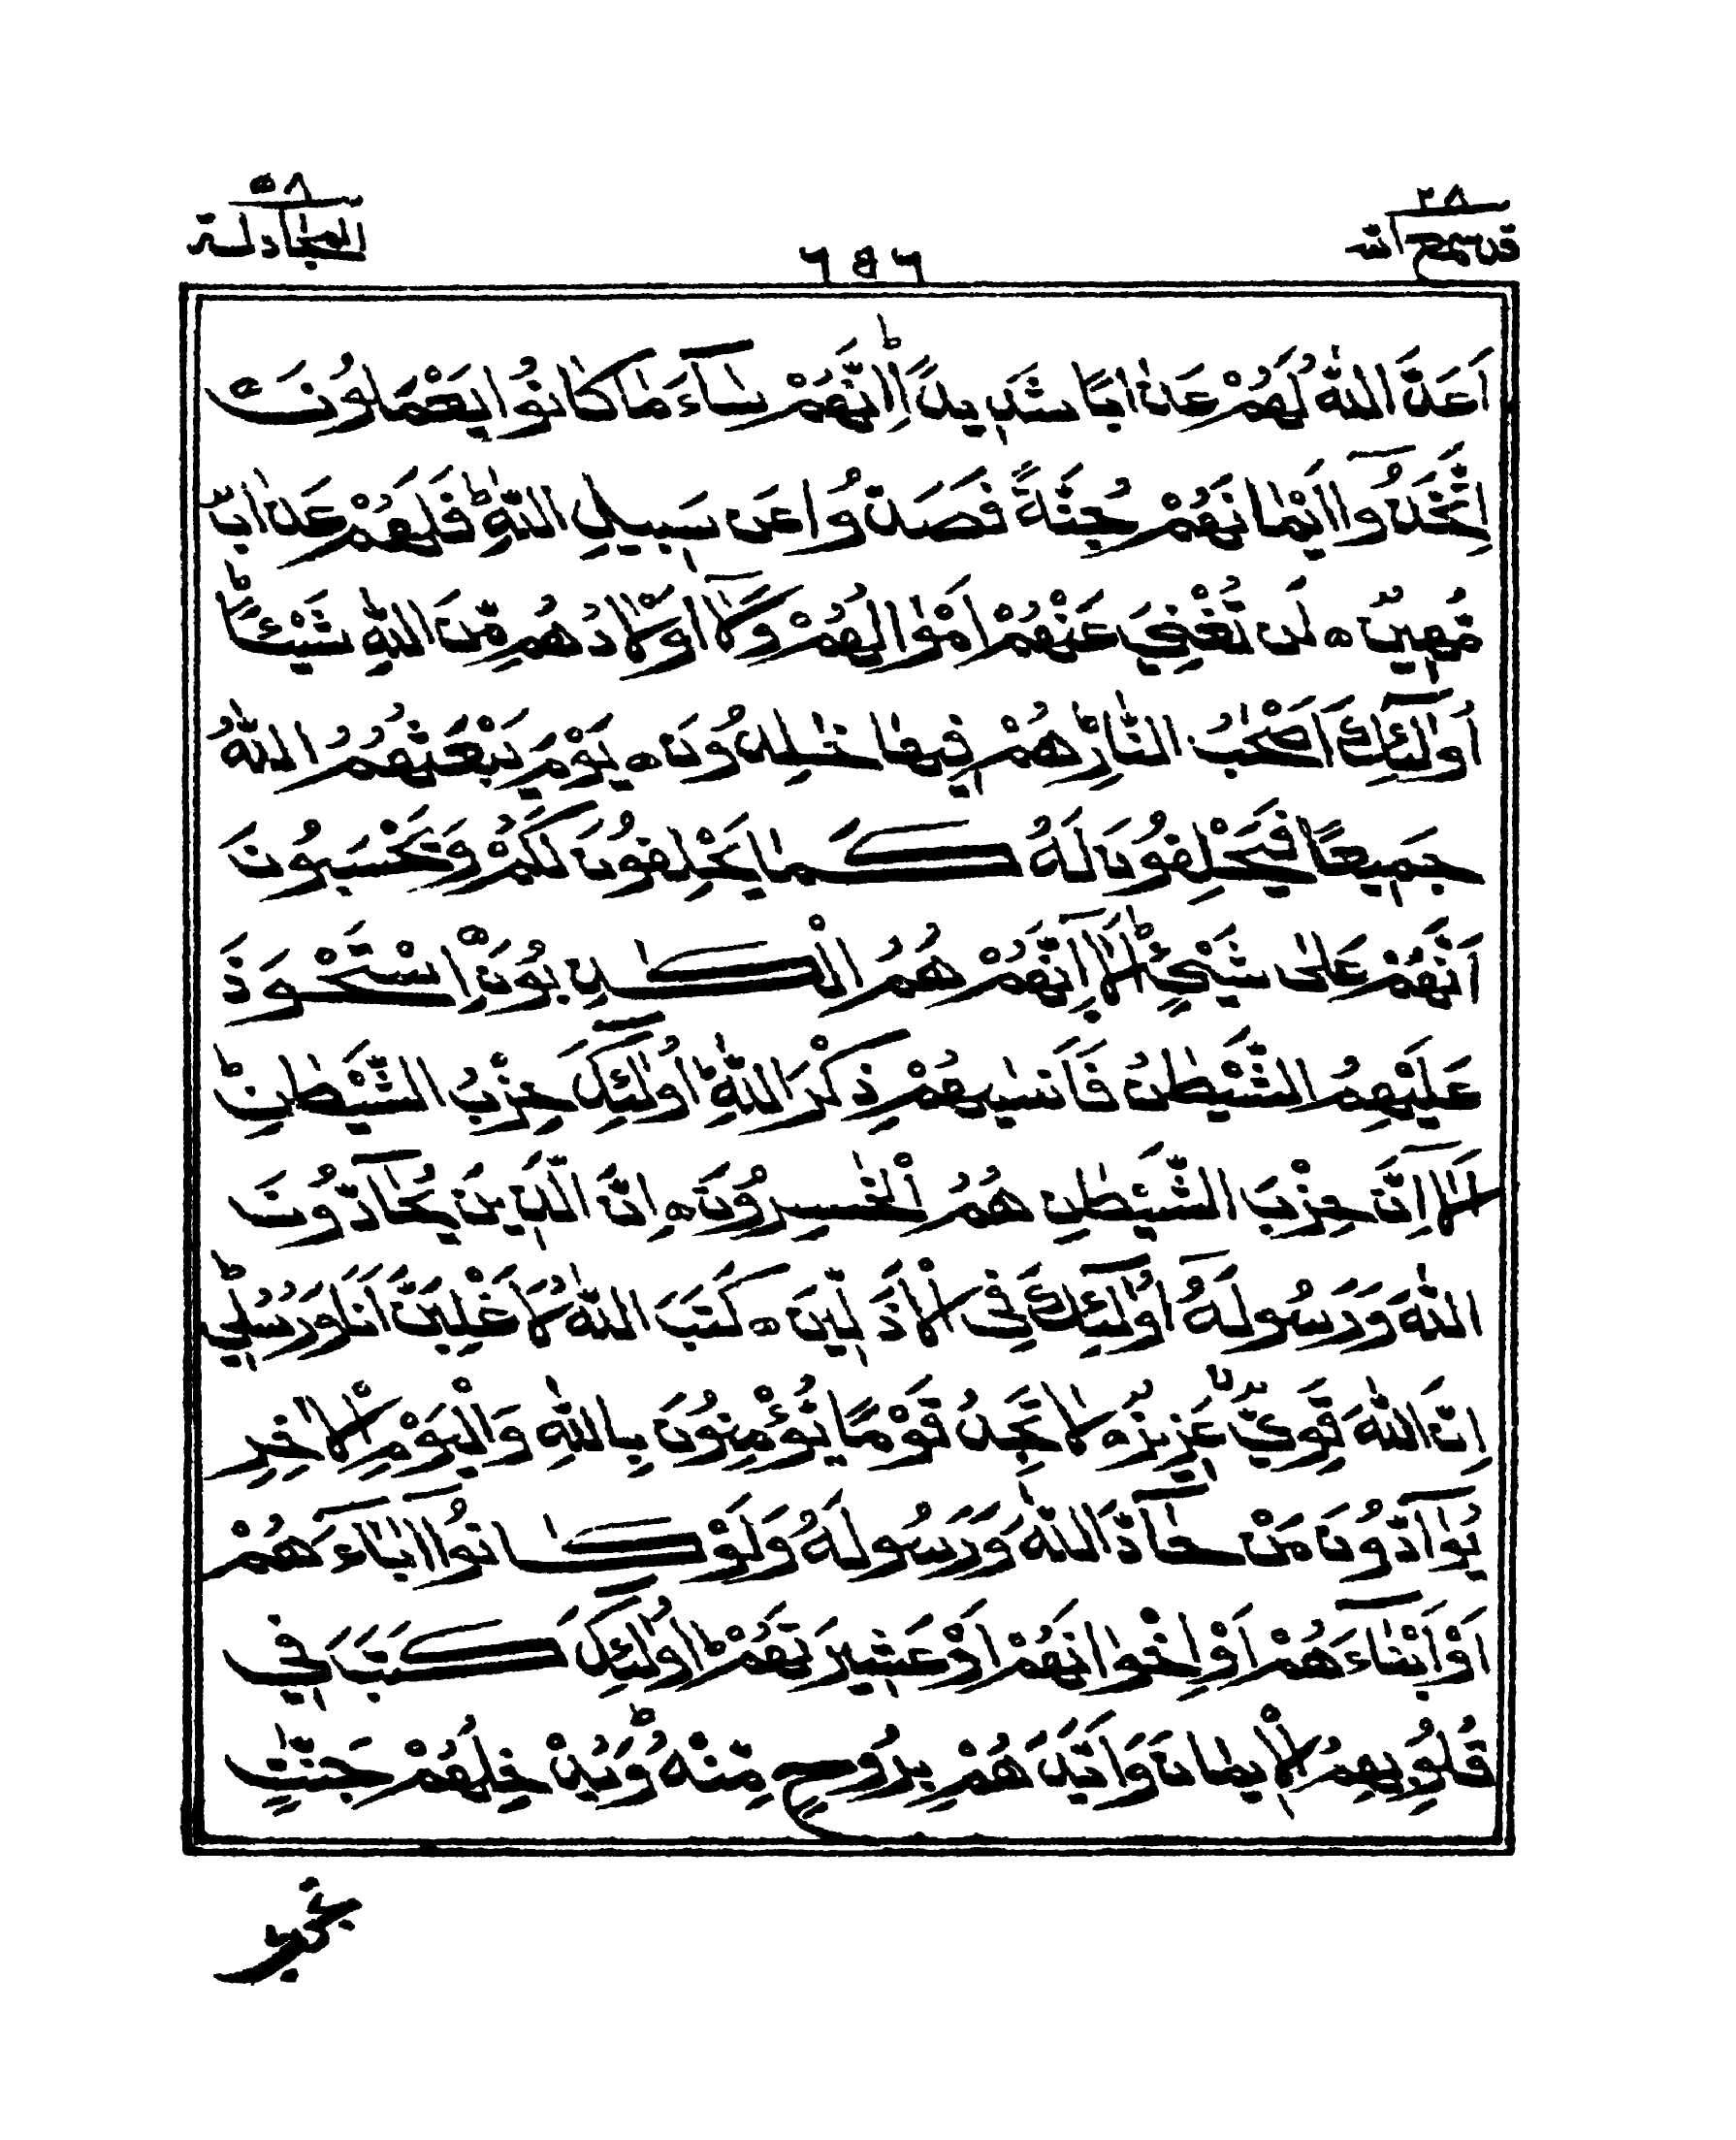 ٢٨
قد سمع الله
٦٥٦
٥٨
المجادلة
اَعَدَّ اللّٰهُ لَهُمْ عَذَابًا شَدِيدًا ؕ اِنَّهُمْ سَآءَ مَا كَانُوْا يَعْمَلُوْنَ
اِتَّخَذُوْٓا اَيْمَانَهُمْ جُنَّةً فَصَدُّوْا عَنْ سَبِيلِ اللّٰهِ ؕ فَلَهُمْ عَذَابٌ
مُّهِينٌ ۝ لَنْ تُغْنِيَ عَنْهُمْ اَمْوَالُهُمْ وَلَآ اَوْلَادُهُمْ مِّنَ اللّٰهِ شَيْئًا ؕ
اُولٰٓئِكَ اَصْحٰبُ النَّارِ ؕ هُمْ فِيهَا خٰلِدُوْنَ ۝ يَوْمَ يَبْعَثُهُمُ اللّٰهُ
جَمِيعًا فَيَحْلِفُوْنَ لَهٗ كَمَا يَحْلِفُوْنَ لَكُمْ وَيَحْسَبُوْنَ
اَنَّهُمْ عَلٰى شَيْئٍ ؕ اَلَآ اِنَّهُمْ هُمُ الْكٰذِبُوْنَ ۝ اِسْتَحْوَذَ
عَلَيْهِمُ الشَّيْطٰنُ فَاَنْسٰىهُمْ ذِكْرَ اللّٰهِ ؕ اُولٰٓئِكَ حِزْبُ الشَّيْطٰنِ ؕ
اَلَآ اِنَّ حِزْبَ الشَّيْطٰنِ هُمُ الْخٰسِرُوْنَ ۝ اِنَّ الَّذِينَ يُحَآدُّوْنَ
اللّٰهَ وَرَسُولَهٗٓ اُولٰٓئِكَ فِي الْاَذَلِّينَ ۝ كَتَبَ اللّٰهُ لَاَغْلِبَنَّ اَنَا وَرُسُلِي ؕ
اِنَّ اللّٰهَ قَوِيٌّ عَزِيزٌ ۝ لَا تَجِدُ قَوْمًا يُّؤْمِنُوْنَ بِاللّٰهِ وَالْيَوْمِ الْاٰخِرِ
يُوَآدُّوْنَ مَنْ حَآدَّ اللّٰهَ وَرَسُولَهٗ وَلَوْ كَانُوْٓا اٰبَآءَهُمْ
اَوْ اَبْنَآءَهُمْ اَوْ اِخْوَانَهُمْ اَوْ عَشِيرَتَهُمْ ؕ اُولٰٓئِكَ كَتَبَ فِي
قُلُوْبِهِمُ الْاِيمَانَ وَاَيَّدَهُمْ بِرُوْحٍ مِّنْهُ ؕ وَيُدْخِلُهُمْ جَنّٰتٍ
تجري